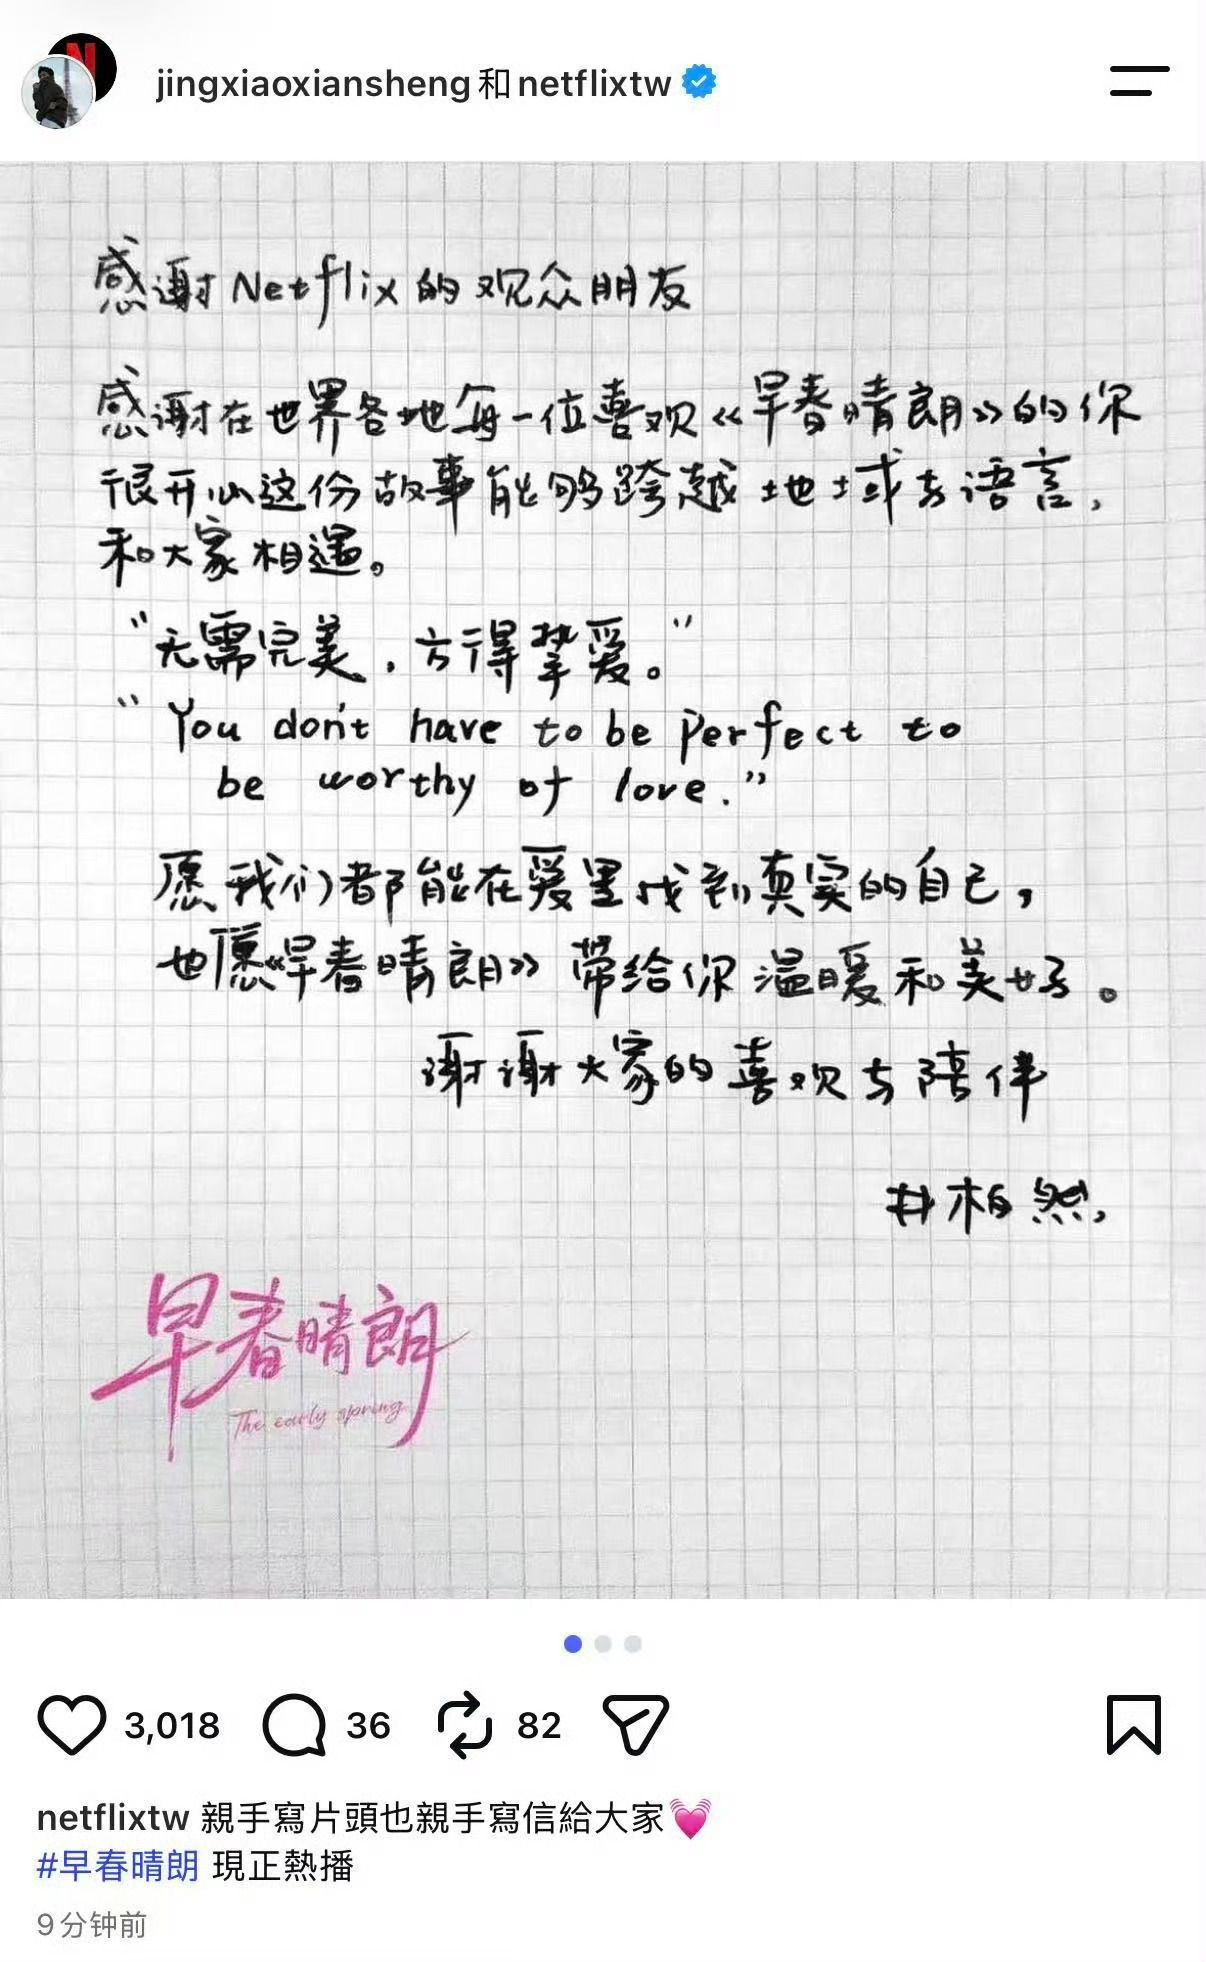 jingxiaoxiansheng和netflixtw
感谢Netflix的观众朋友
感谢在世界各地每一位喜欢《早春晴朗》的你
很开心这份故事能够跨越土地域与语言，
和大家相遇。
“无需完美，方得挚爱。”
“You don't have to be perfect to
be worthy of love.”
愿我们都能在爱里找到真实的自己，
也愿《早春晴朗》带给你温暖和美好。
谢谢大家的喜欢与陪伴
井柏然，
早春晴朗
The early spring
3,018 36 82
netflixtw 親手寫片頭也親手寫信給大家💓
#早春晴朗 現正熱播
9分钟前